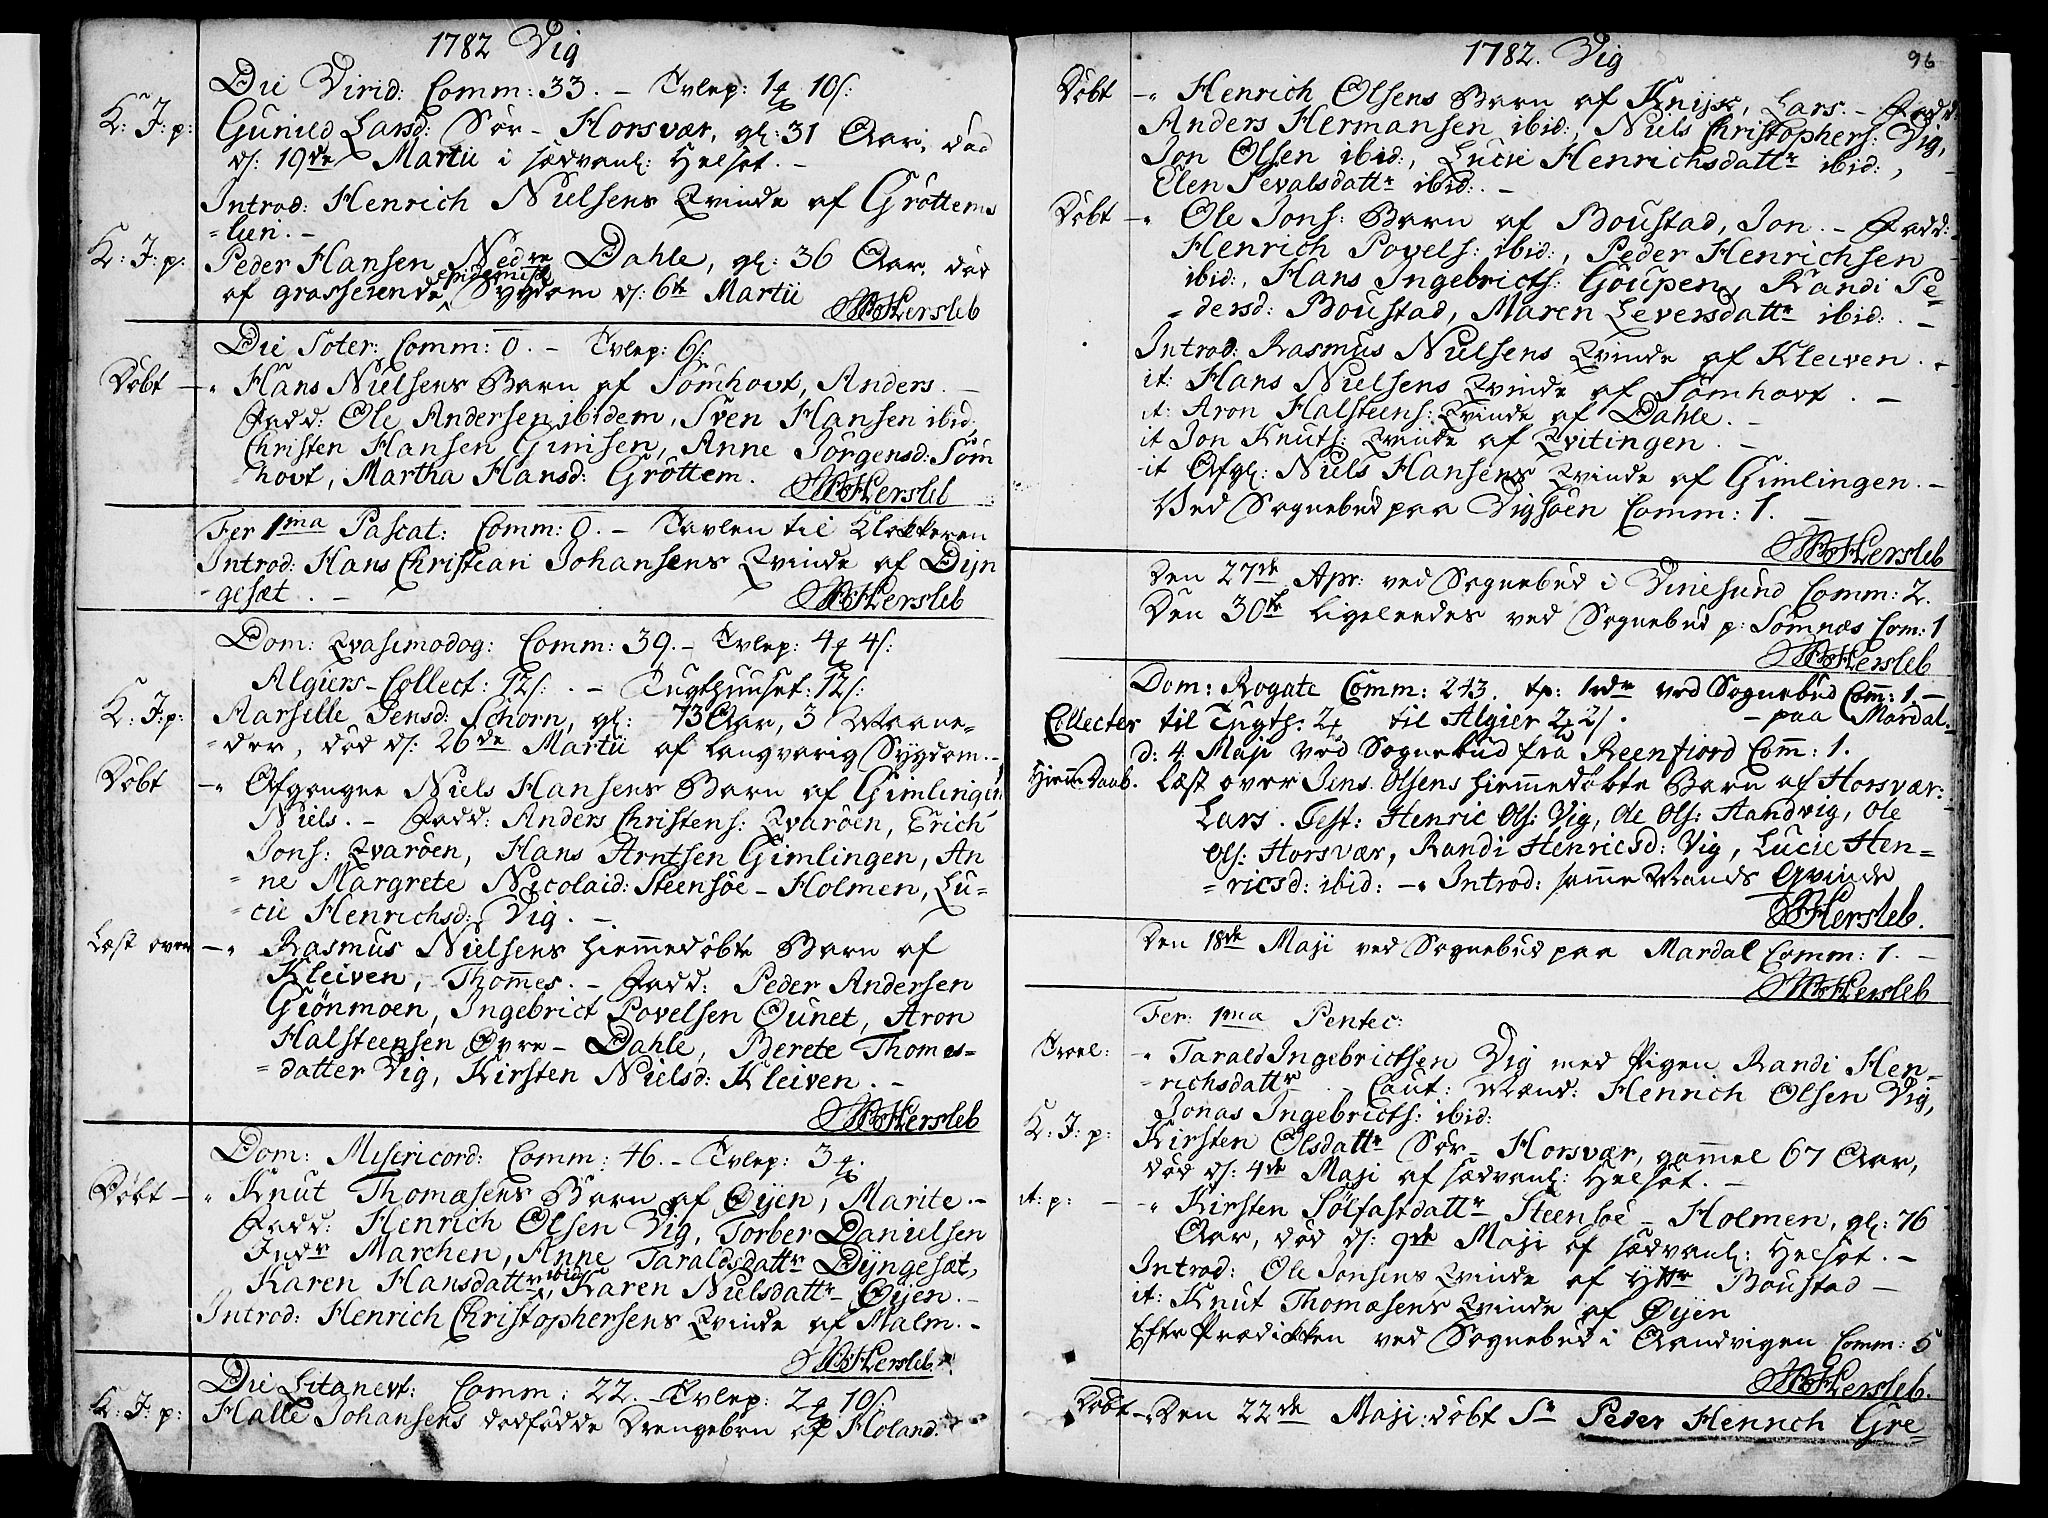 1782 Vig
Die Virid: Comm: 33. – Tvlep: 1 10/:
K: J: p: Gunild Larsd: Sør-Horsvær, gl: 31 Aar, død
d: 19de Martii i sædvanl: Helsot. –
Introd: Henrich Nielsens Qvinde af Grøttems
=lien. –
K: J: p: Peder Hansen Nedre Dahle, gl: 36 Aar, død
af grasserende epidemisk Sygdom d: 6te Martii Hersleb
Die Soter: Comm: 0. – Tvlep: 6/:
Døbt –" Hans Nielsens Barn af Sømhovt, Anders. –
Fadd: Ole Andersen ibidem, Sven Hansen ibid:
Christen Hansen Gimsen, Anne Jørgensd: Søm
hovt, Martha Hansd: Grøttem. Hersleb
Fer 1ma Pascat: Comm: 0. – Tavlen til Klokkeren
Introd: Hans Christian Johansens Qvinde af Dijn
=gesæt. – Hersleb
Dom: Qvasimodog: Comm: 39. – Tvlep: 4 4/:
Algiers-Collect: 12/: – Tugthuuset: 12/:
K: J: p: Marselle Jensd: Schorn, gl: 73 Aar, 3 Maane=
=der, død d: 26de Martii af langvarig Sygdom. –
Døbt –" Afgangne Niels Hansens Barn af Gimlingen
Niels. – Fadd: Anders Christens: Qvarøen, Erich
Jons: Qvarøen, Hans Arntsen Gimlingen, An
=ne Margrete Nicolaid: Steensøe-Holmen, Lu=
=cie Henrichsd: Vig. –
Læst over –" Rasmus Nielsens hiemmedøbte Barn af
Kleiven, Thomes. – Fadd: Peder Andersen
Giønmoen, Ingebrict Povelsen Ounet, Aron
Halsteensen Øvre-Dahle, Berete Thomes=
=datter Vig, Kirsten Nielsd: Kleiven. –
Hersleb
Dom: Misericord: Comm: 46. – Tvlep: 3
Døbt –" Knut Thomæsens Barn af Øijen, Marite. –
Fadd: Henrich Olsen Vig, Torber Danielsen
Indr Marchen, Anne Taraldsdattr Dÿngesæt,
Karen Hansdattr ibid:, Karen Nielsdattr Øijen. –
Introd: Henrich Christophersens Qvinde af Malm. –
Hersleb
Die Litanevt: Comm: 22. – Tvlep: 2 10/:
K: J: p: Halle Johansens dødfødde Drengebrn af Holand.
1782. Vig 96
Døbt –" Henrich Olsens Barn af Knijse, Lars. – Fadd:
Anders Hermansen ibid:, Niels Christophers: Vig,
Jon Olsen ibid:, Lucie Henrichsdattr ibid:,
Elen Sevalsdattr ibid: –
Døbt –" Ole Jons: Barn af Boustad, Jon. – Fadd:
Henrich Povels: ibid:, Peder Henrichsen
ibid:, Hans Ingebricts: Goupen, Randi Pe=
=dersd: Boustad, Maren Leversdattr ibid: –
Introd: Rasmus Nielsens Qvinde af Kleiven. –
it: Hans Nielsens Qvinde af Sømhovt. –
it: Aron Halsteens: Qvinde af Dahle. –
it Jon Knuts: Qvinde af Qvitingen. –
it Afgl: Niels Hansens Qvinde af Gimlingen. –
Ved Sognebud paa Vigsøen Comm: 1. –
Hersleb
Den 27de Apr: ved Sognebud i Viriesund Comm: 2.
Den 30te ligeleedes ved Sognebud p: Sømnæs Com: 1
Hersleb
Dom: Rogate Comm: 243. tp: ved Sognebud Comm: 1. –
Collecter til Tugth: 2 til Algier 2 2/. – paa Mardal.
d: 4 Maji ved Sognebud fra Reenfiord Comm: 1.
Hjemme Daab. Læst over Jens Olsens hiemmedøbte Barn af Horsvær:
Lars. Test: Henric Ols: Vig, Ole Ols: Handvig, Ole
Ols: Horsvær, Randi Henricsd: Vig, Lucie Hen=
=ricsd: ibid: –" Introd: samme Mands Qvinde
Hersleb.
Den 18de Maji ved Sognebud paa Mardal Comm: 1. –
Hersleb
Fer: 1ma Pentec:
Trol: –" Tarald Ingebrictsen Vig med Pigen Randi Hen=
=richsdattr – Caut: Mænd: Henrich Olsen Vig,
Jonas Ingebricts: ibid:
K: J: p: Kirsten Olsdattr Sør-Horsvær, gammel 67 Aar,
død d: 4de Maji af sædvanl: Helsot. –
it: p: –" Kirsten Sølfastdattr Steensøe-Holmen, gl: 76
Aar, død d: 9de Maji af sædvanl: Helsot. –
Introd: Ole Jonsens Qvinde af Yttr Boustad –
it: Knut Thomæsens Qvinde af Øijen
Efter Prædikken ved Sognebud i Aandvigen Comm: 5
Hersleb.
Døbt –" Den 22de Maji: døbt Sr Peder Henrich Gre=